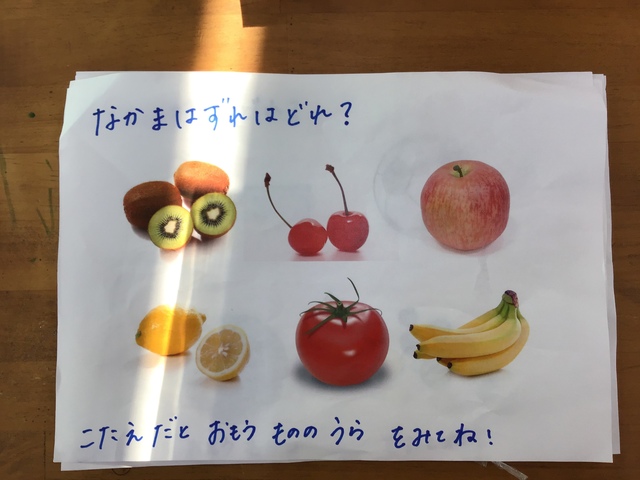 なかまはずれはどれ?
こたえだと おもう もののうら をみてね!